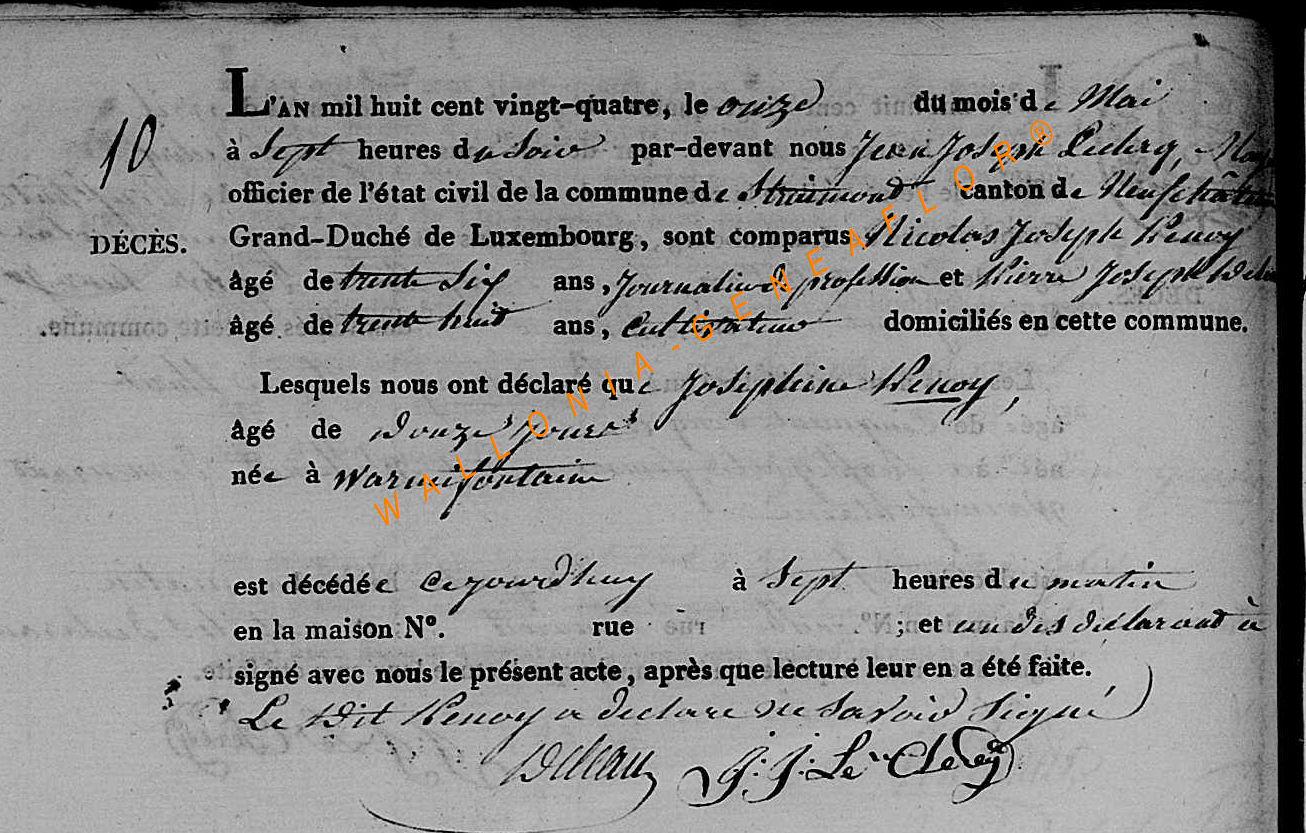 L'AN mil huit cent vingt-quatre, le onze du mois de Mai
10
à Sept heures du Soir par-devant nous Jean Joseph Leclerq,
officier de l'état civil de la commune de Straimont canton de Neufchâteau
DÉCÈS.
Grand-Duché de Luxembourg, sont comparus Nicolas Joseph Henoy
âgé de trente Six ans, Journalier profession et Pierre Joseph
âgé de trente huit ans, Cultivateur domiciliés en cette commune.
Lesquels nous ont déclaré que Joséphine Henoy,
âgé de Douze Jours
née à Warmifontaine
est décédée Cejourdhuy à Sept heures du matin
en la maison N°. rue ; et un des déclarant à
signé avec nous le présent acte, après que lecture leur en a été faite.
Le Dit Henoy a declare ne Savoir Signé
J: J: Le Clerq
WALLONIA-GENEAFLOR®